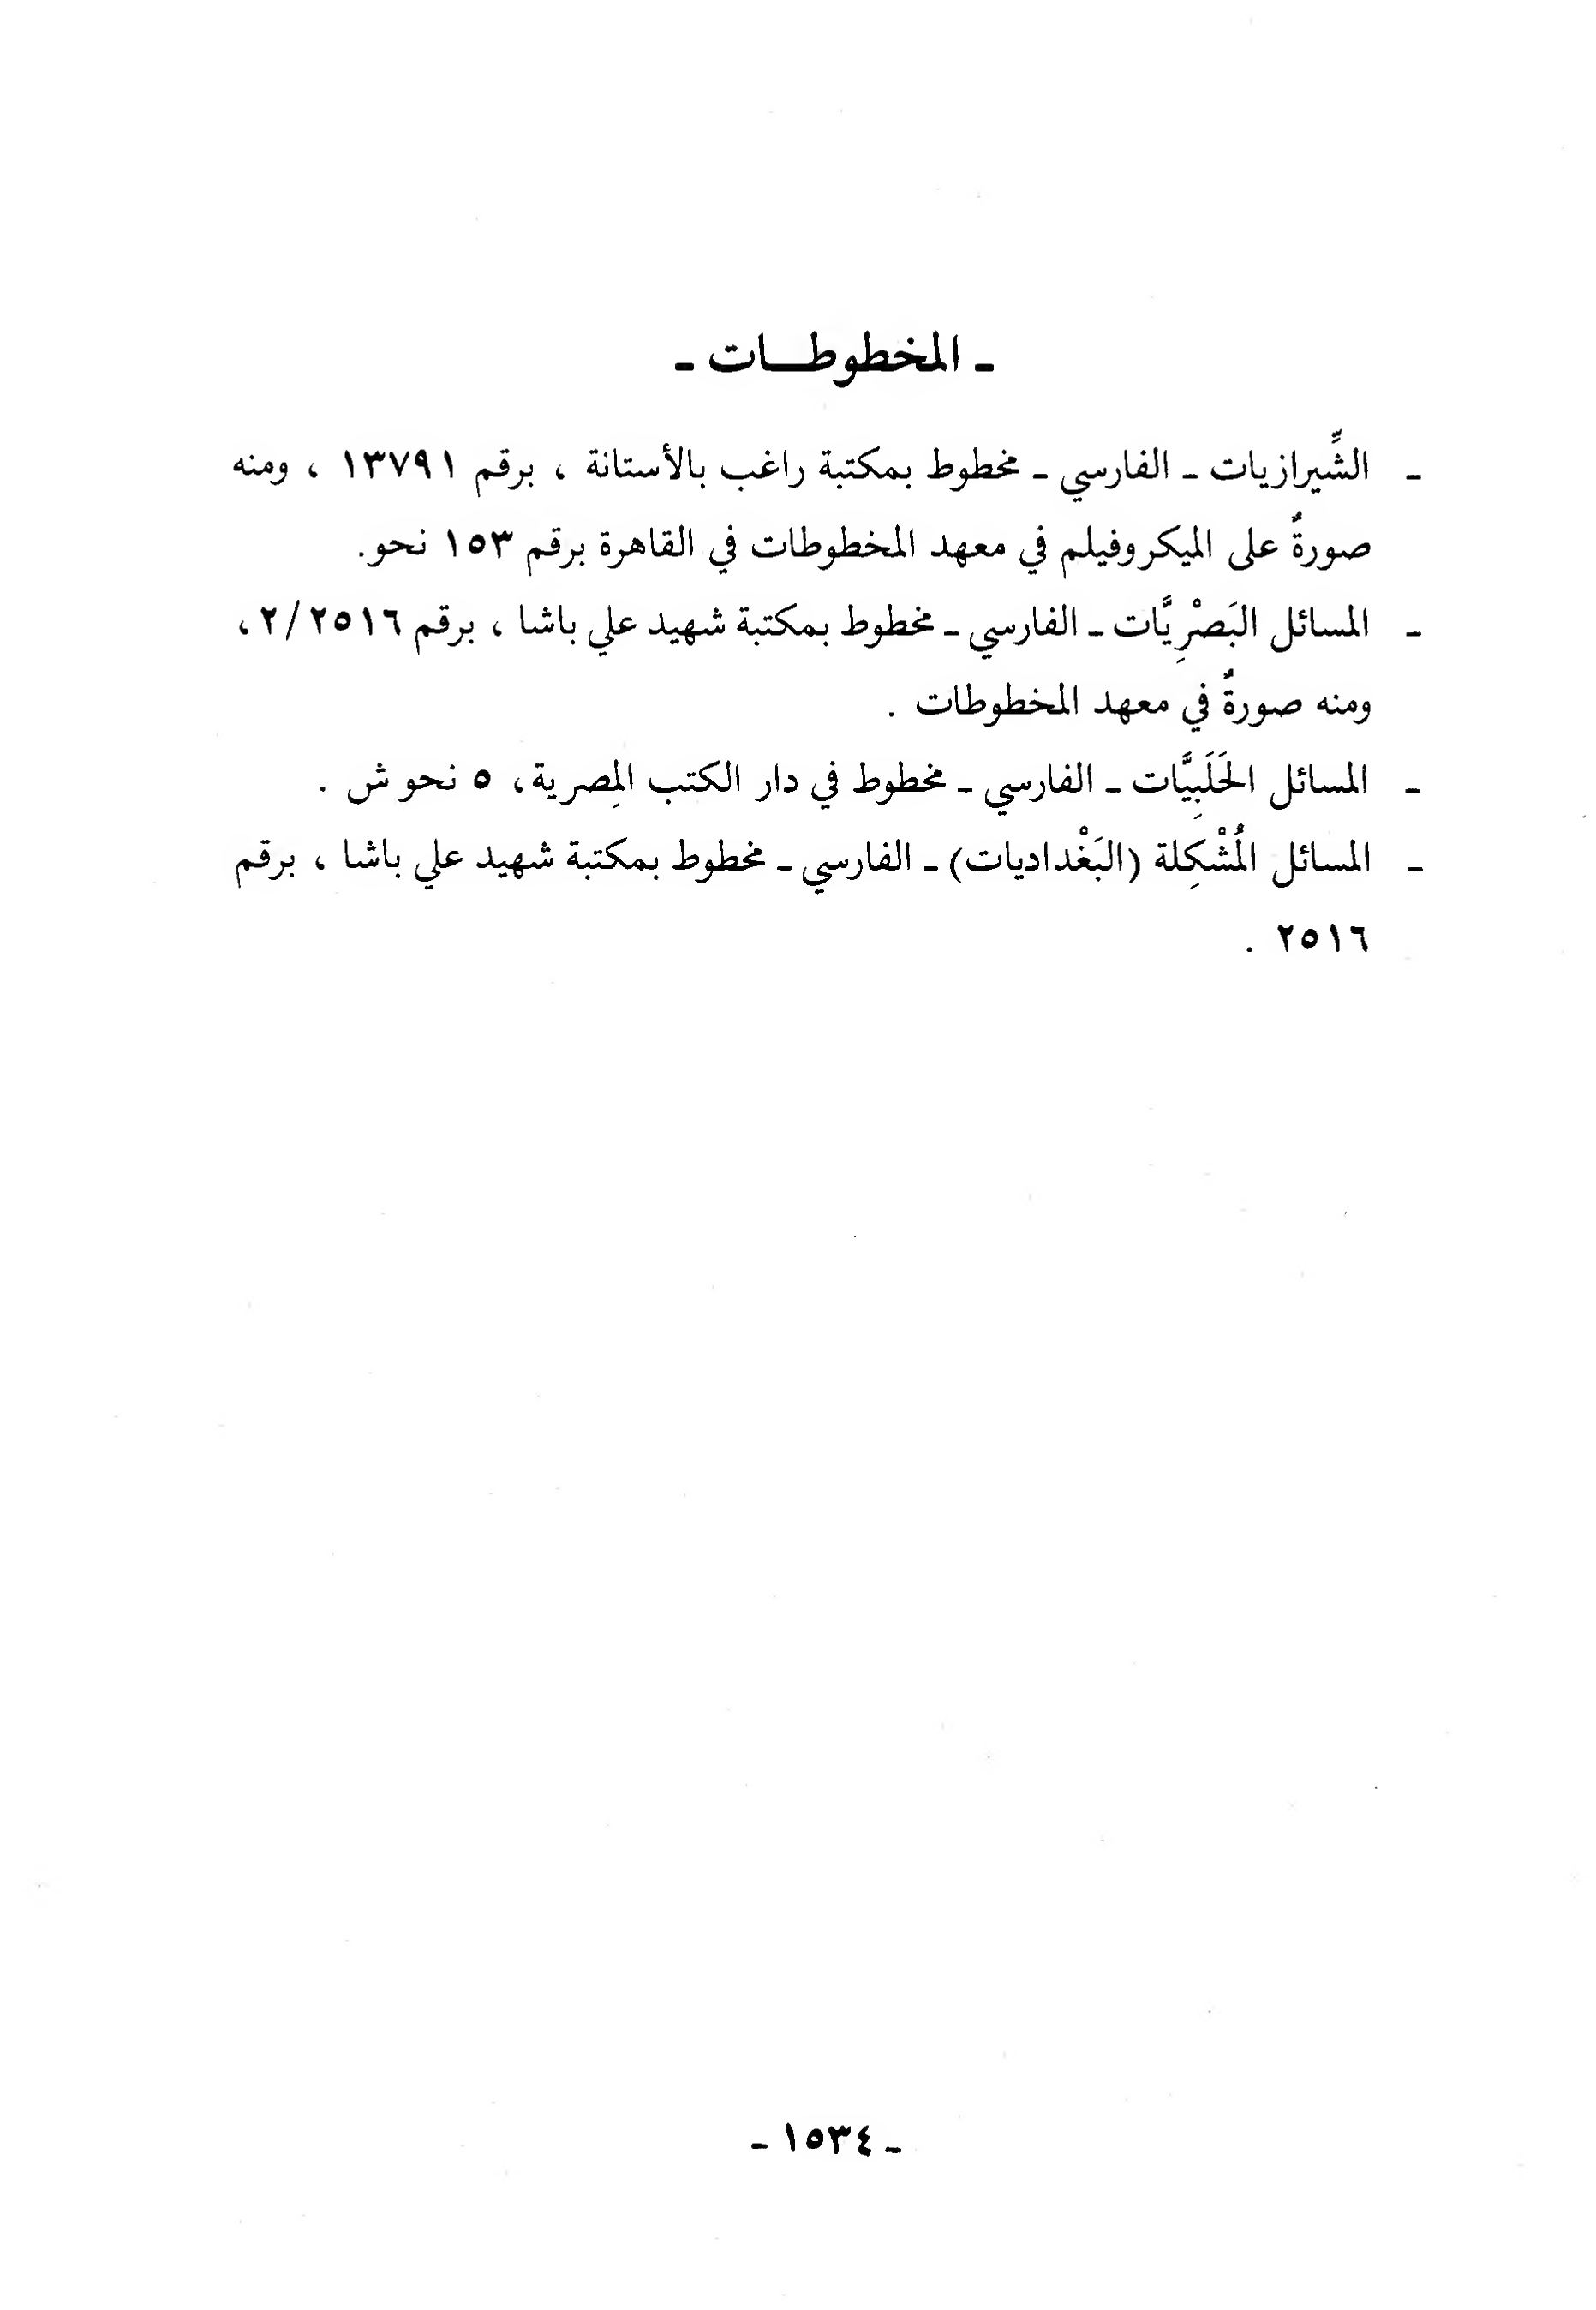 ـ المخطوطـــات ـ
ـ الشِّيرازيات ـ الفارسي ـ مخطوط بمكتبة راغب بالأستانة ، برقم ١٣٧٩١ ، ومنه
صورةٌ على الميكروفيلم في معهد المخطوطات في القاهرة برقم ١٥٣ نحو.
ـ المسائل البَصْرِيَّات ـ الفارسي ـ مخطوط بمكتبة شهيد علي باشا ، برقم ٢/٢٥١٦ ،
ومنه صورةٌ في معهد المخطوطات .
ـ المسائل الحَلَبِيَّات ـ الفارسي ـ مخطوط في دار الكتب المِصرية، ٥ نحو ش .
ـ المسائل المُشْكِلة (البَغْداديات) ـ الفارسي ـ مخطوط بمكتبة شهيد علي باشا ، برقم
٢٥١٦ .
ـ ١٥٣٤ ـ